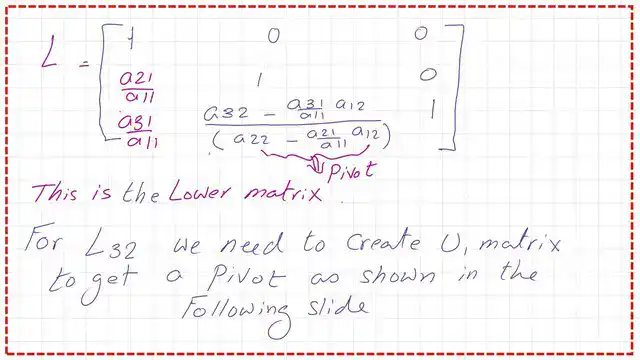 L = [ 1 0 0
a21/a11 1 0
a31/a11 (a32 - a31/a11 a12) / (a22 - a21/a11 a12) 1 ]
Pivot
This is the Lower matrix.
For L32 we need to create U1 matrix
to get a Pivot as shown in the
Following slide